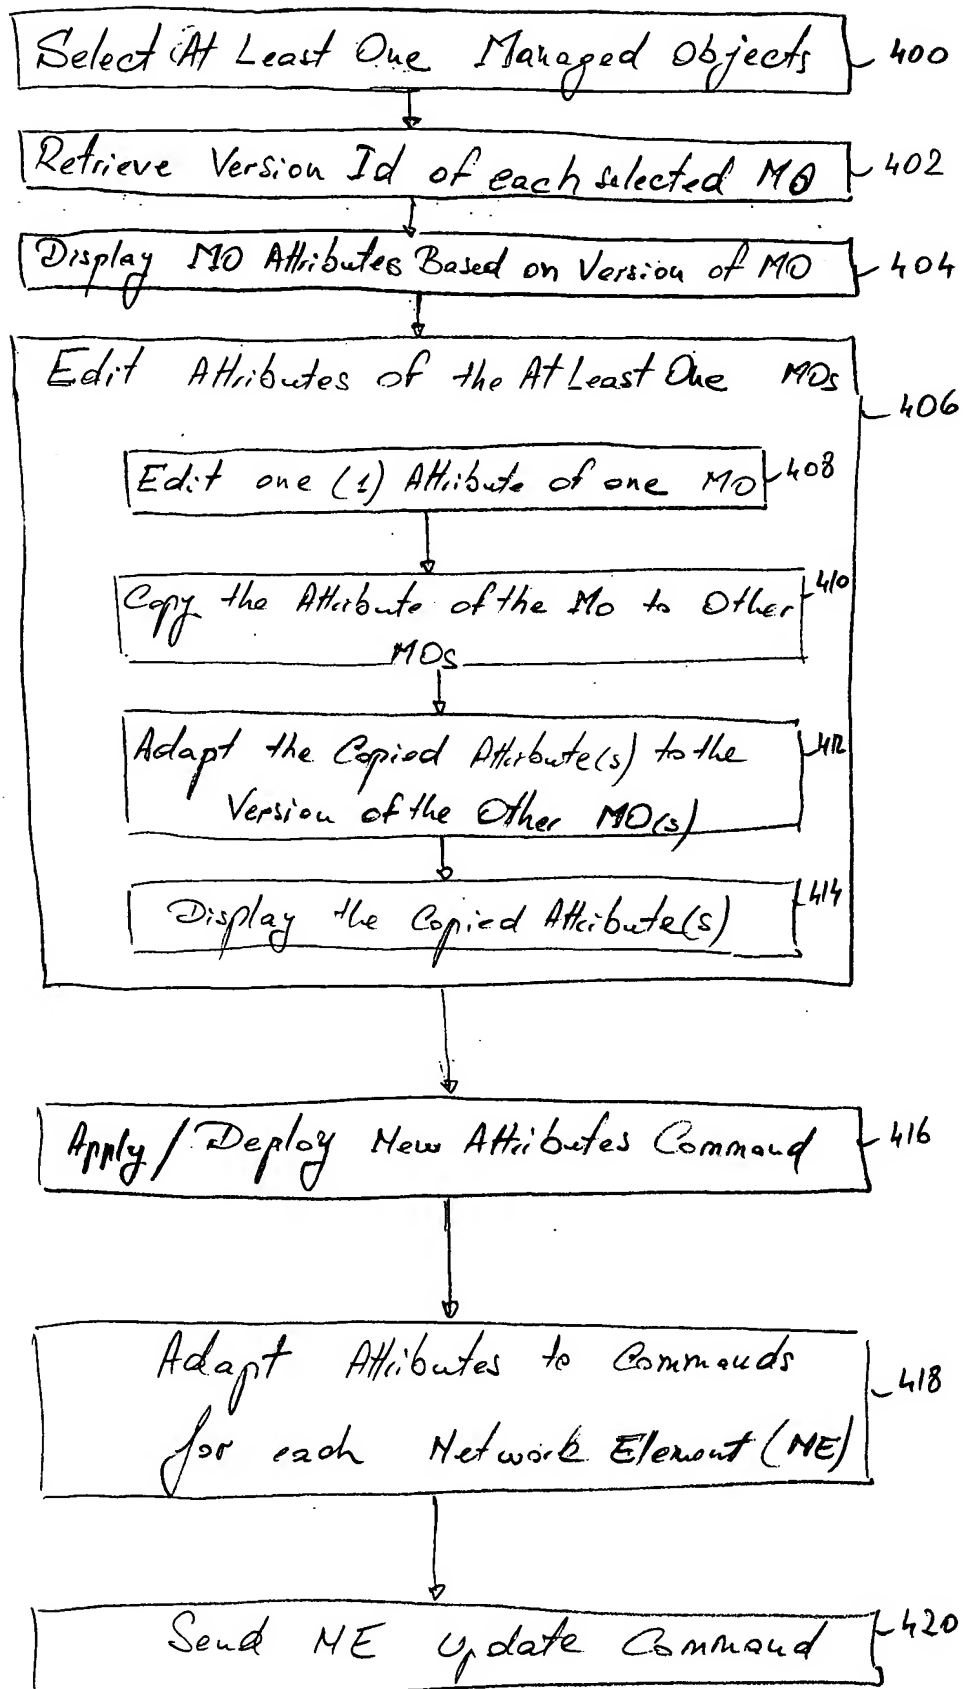 Select At Least One Managed Objects 400
Retrieve Version Id of each selected MO 402
Display MO Attributes Based on Version of MO 404
Edit Attributes of the At Least One MOs
406
Edit one (1) Attribute of one MO 408
Copy the Attribute of the Mo to Other 410
MOs
Adapt the Copied Attribute(s) to the 412
Version of the Other MO(s)
Display the Copied Attribute(s) 414
Apply / Deploy New Attributes Command 416
Adapt Attributes to Commands
418
for each Network Element (NE)
Send NE update Command 420